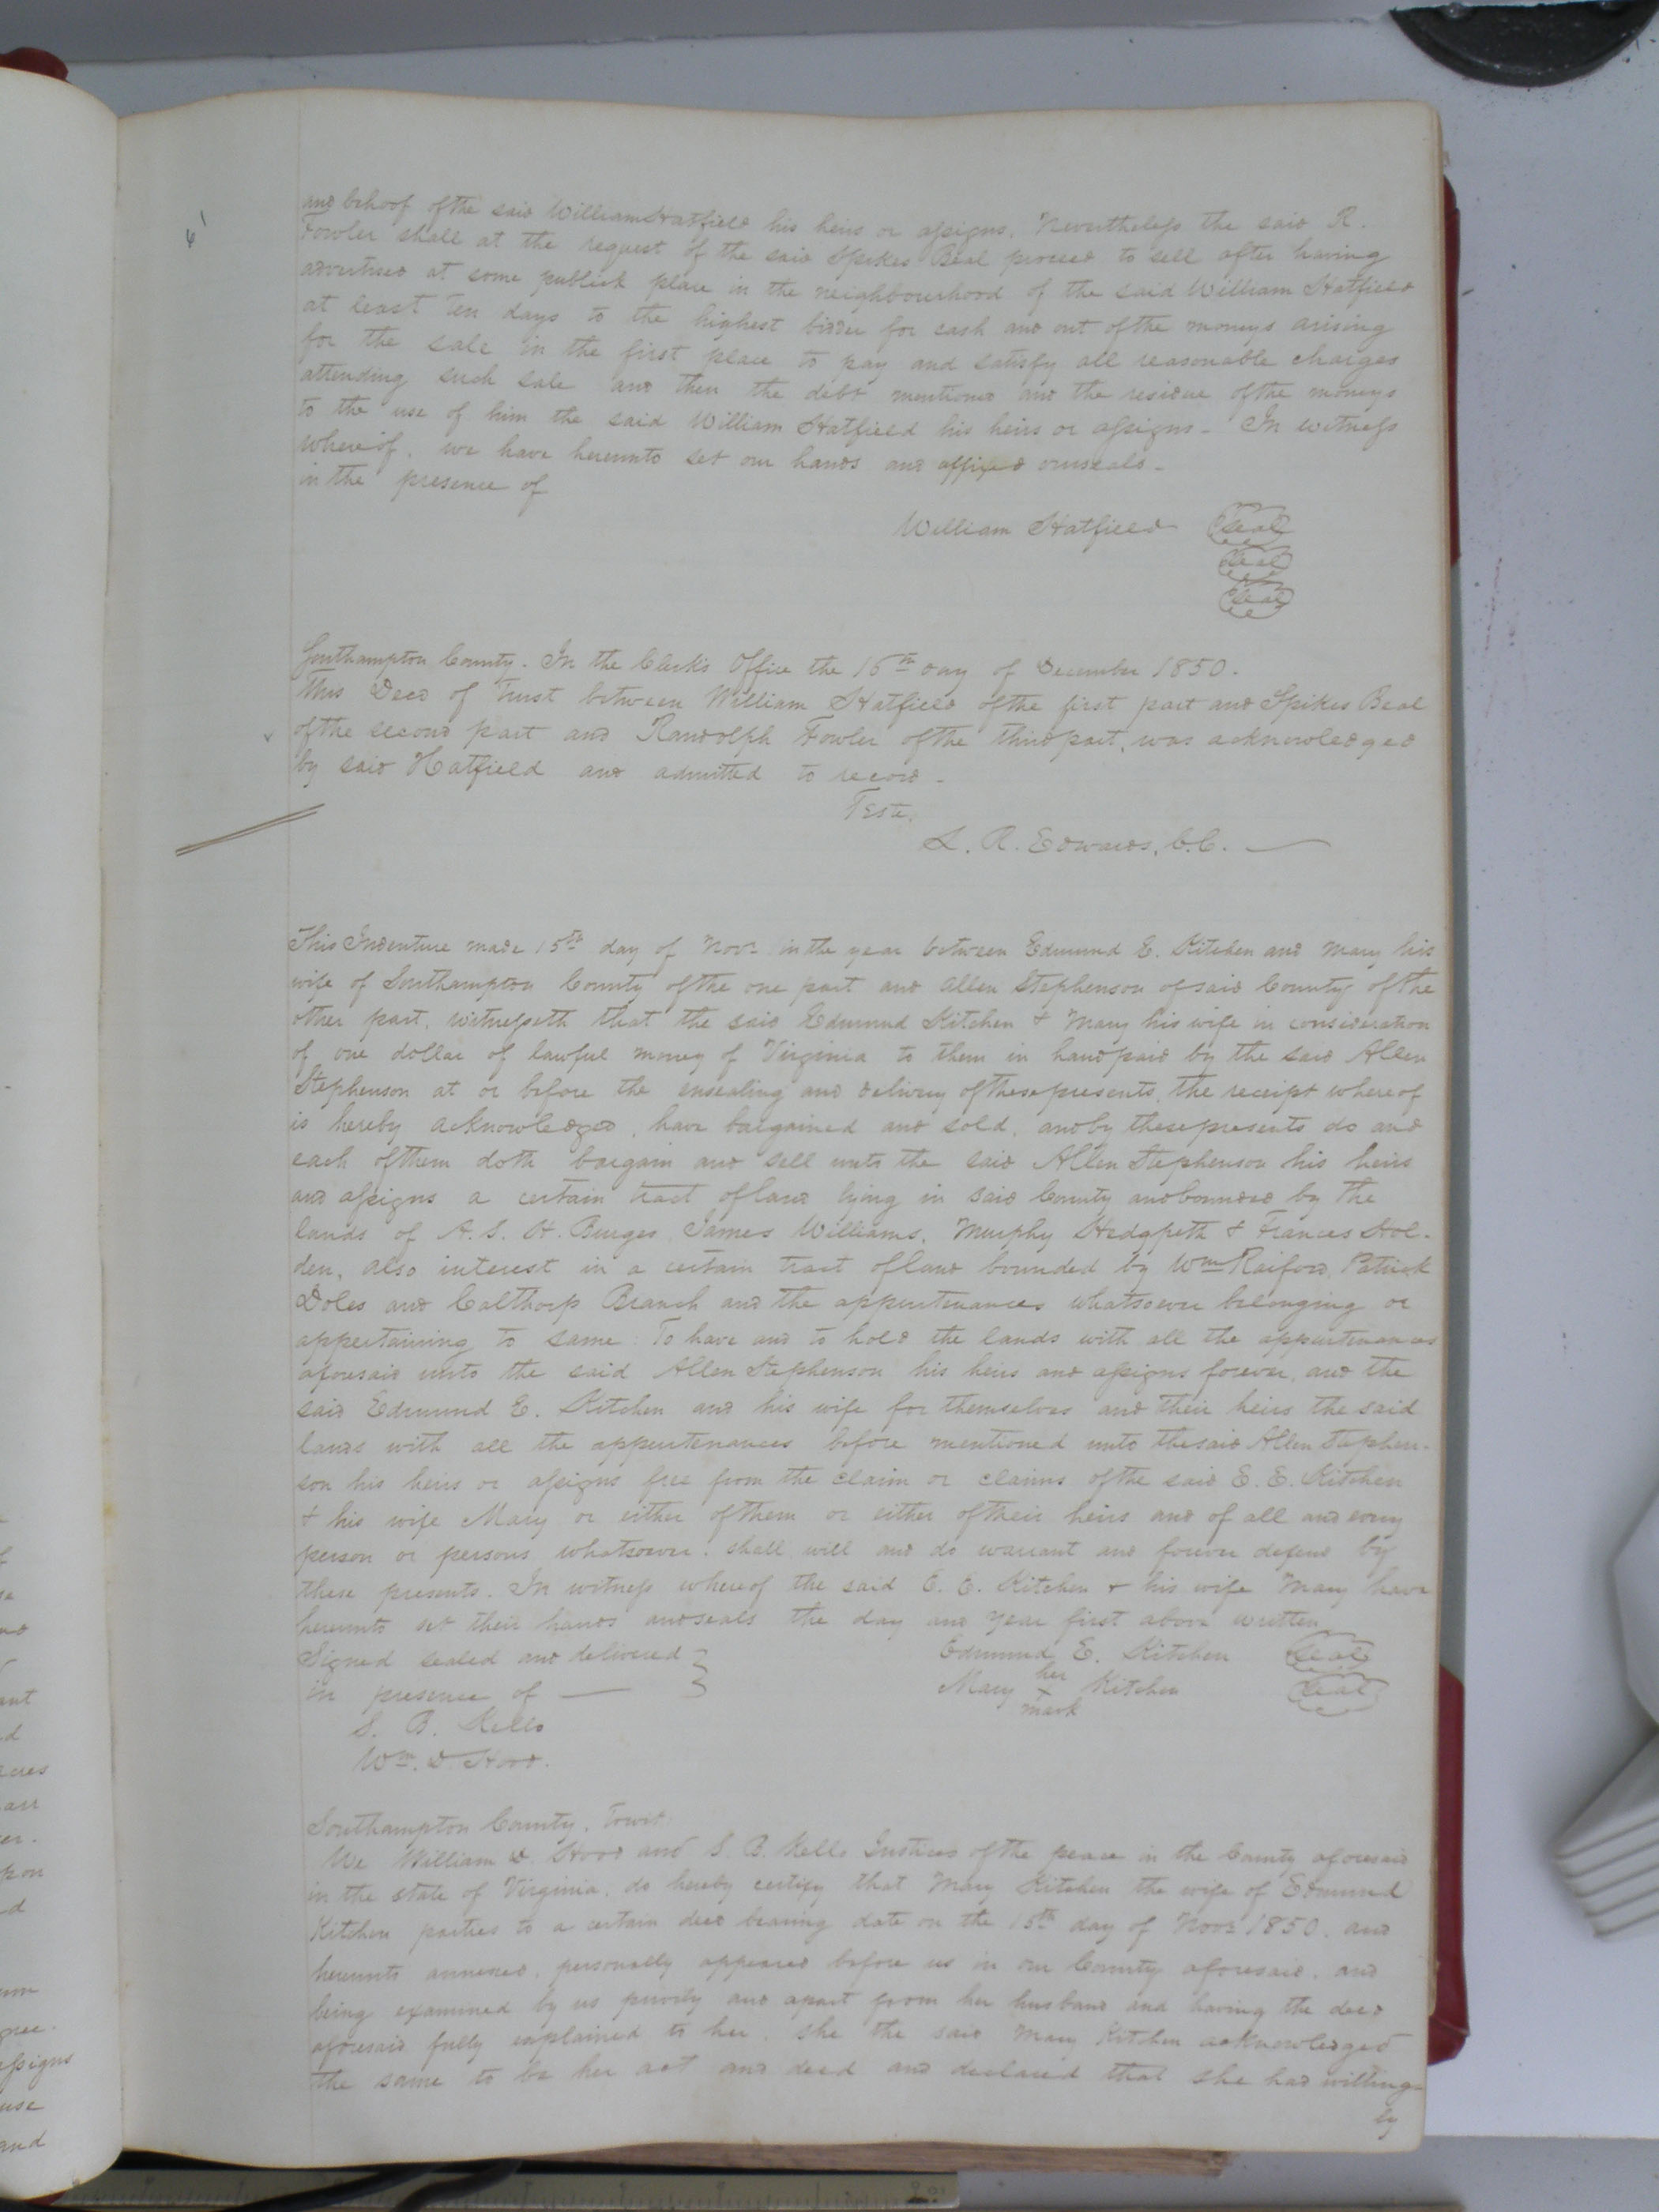 and behoof of the said William Hatfield his heirs or assigns. Nevertheless the said R.
Fowler shall at the request of the said Spikes Beal proceed to sell after having
advertised at some publick place in the neighbourhood of the said William Hatfield
at least Ten days to the highest bidder for cash and out of the moneys arising
for the sale in the first place to pay and satisfy all reasonable charges
attending such sale and then the debt mentioned and the residue of the moneys
to the use of him the said William Hatfield his heirs or assigns - In witness
whereof, we have hereunto set our hands and affixed our seals -
in the presence of
William Hatfield Seal
Seal
Seal
Southampton County. In the Clerk's Office the 16th day of December 1850.
This Deed of Trust between William Hatfield of the first part and Spikes Beal
of the second part and Randolph Fowler of the third part, was acknowledged
by said Hatfield and admitted to record -
Teste,
L. R. Edwards, C.C.
This Indenture made 15th day of Novr in the year between Edmund E. Kitchen and Mary his
wife of Southampton County of the one part and Allen Stephenson of said County of the
other part, witnesseth that the said Edmund Kitchen & Mary his wife in consideration
of one dollar of lawful money of Virginia to them in hand paid by the said Allen
Stephenson at or before the ensealing and delivery of these presents, the receipt whereof
is hereby acknowledged, have bargained and sold, and by these presents do and
each of them doth bargain and sell unto the said Allen Stephenson his heirs
and assigns a certain tract of land lying in said County and bounded by the
lands of A. S. H. Burges James Williams, Murphy Hedgpeth & Frances Hol-
den, also interest in a certain tract of land bounded by Wm Raiford, Patrick
Doles and Calthorp Branch and the appurtenances whatsoever belonging or
appertaining to same. To have and to hold the lands with all the appurtenances
aforesaid unto the said Allen Stephenson his heirs and assigns forever, and the
said Edmund E. Kitchen and his wife for themselves and their heirs the said
lands with all the appurtenances before mentioned unto the said Allen Stephen-
son his heirs or assigns free from the claim or claims of the said E. E. Kitchen
& his wife Mary or either of them or either of their heirs and of all and every
person or persons whatsoever. shall will and do warrant and forever defend by
these presents. In witness whereof the said E. E. Kitchen & his wife Mary have
hereunto set their hands and seals the day and year first above written
Signed sealed and delivered } Edmund E. Kitchen Seal
in presence of — her
Mary X Kitchen Seal
mark
S. B. Kello
Wm. D. Hood.
Southampton County, Towit:
We William D. Hood and S. B. Kello Justices of the peace in the County aforesaid
in the state of Virginia, do hereby certify that Mary Kitchen the wife of Edmund
Kitchen parties to a certain deed bearing date on the 15th day of Novr 1850. and
hereunto annexed, personally appeared before us in our County aforesaid, and
being examined by us privily and apart from her husband and having the deed
aforesaid fully explained to her, she the said Mary Kitchen acknowledged
the same to be her act and deed and declared that she had willing-
ly